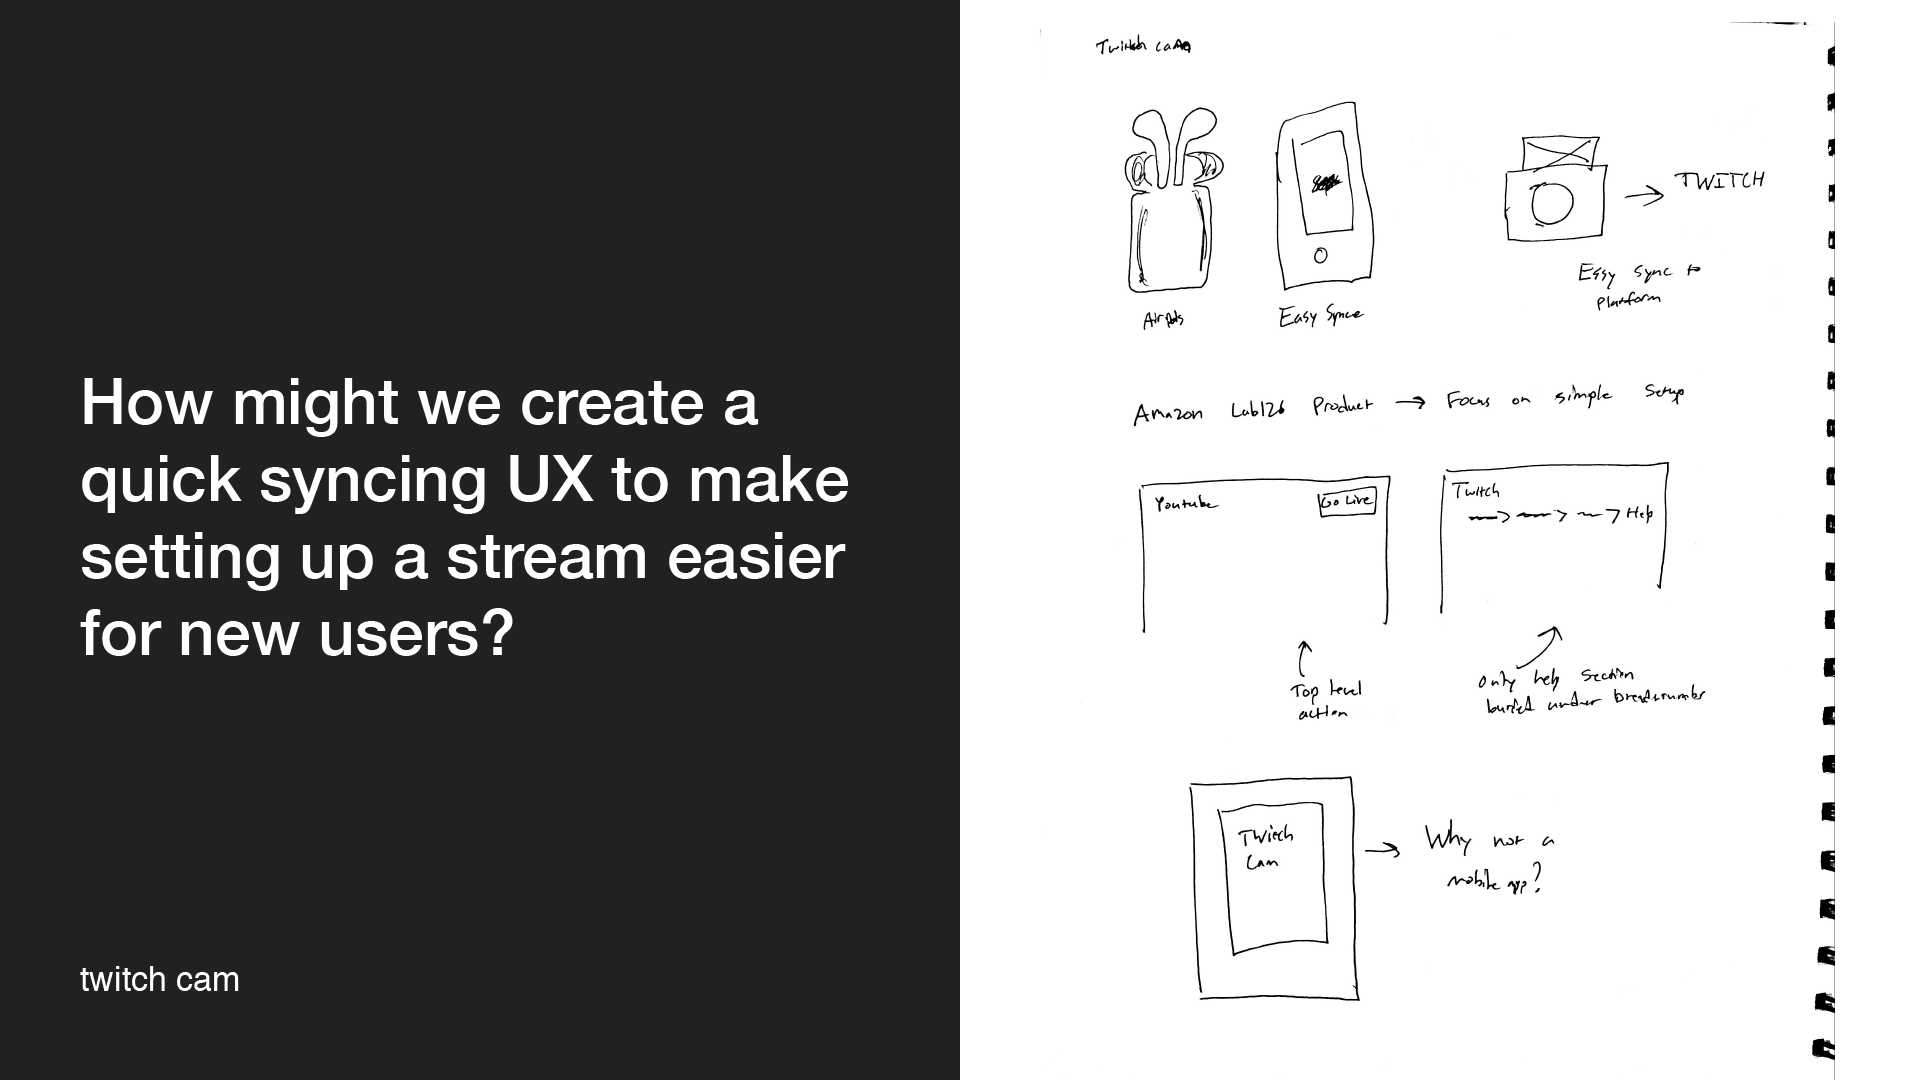 How might we create a
quick syncing UX to make
setting up a stream easier
for new users?
twitch cam
Twitch cam
AirPods
Easy Sync
TWITCH
Easy sync to
platform
Amazon Lab126 Product → Focus on simple setup
Youtube
Go Live
Twitch
→ → → Help
Top level
action
only help section
buried under breadcrumbs
Twitch
Cam
Why not a
mobile app?